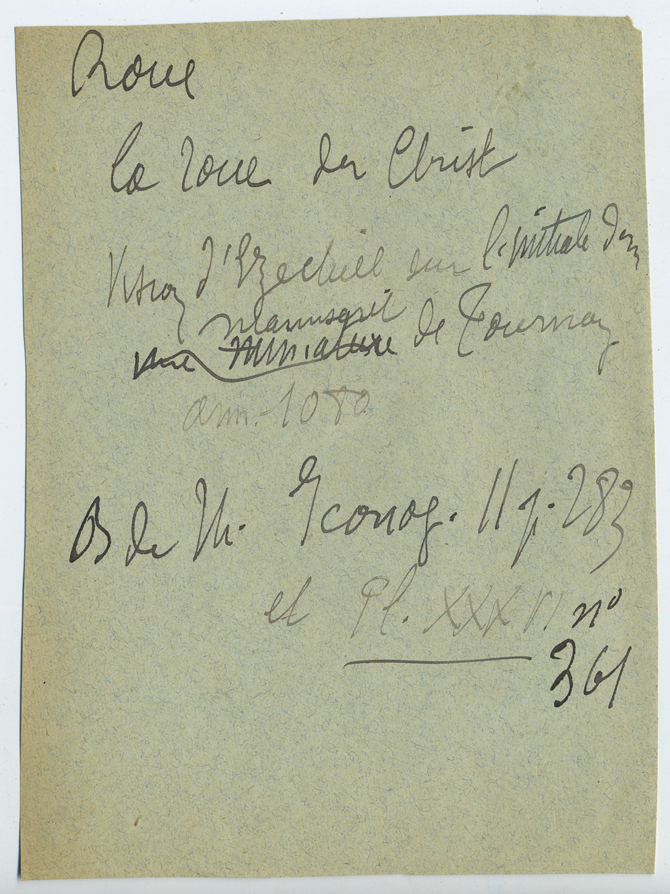 Roue
la roue du Christ
Vision d'Ezechiel sur l'initiale d'un
manuscrit
une miniature de Tournay
ann. 1080
B de M. Iconog. II p. 283
et Pl. XXXVI n°
361